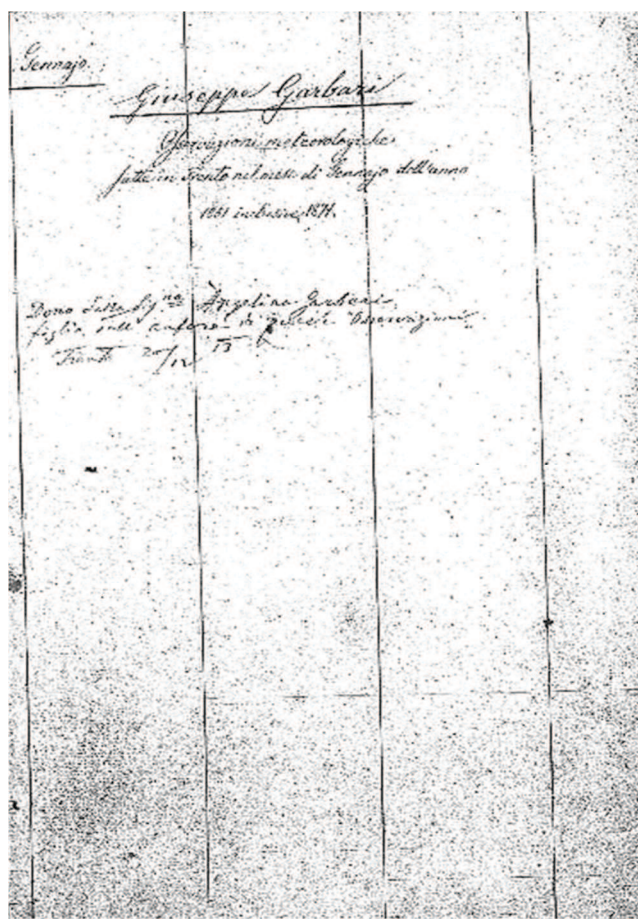 Gennajo.
Giuseppe Garbari
Osservazioni meteorologiche
fatte in Trento nel mese di Gennajo dell'anno
1861 inclusive 1871.
Dono della Sig.na Angelina Garbari
figlia dell'autore di queste Osservazioni.
Trento 20/12 13